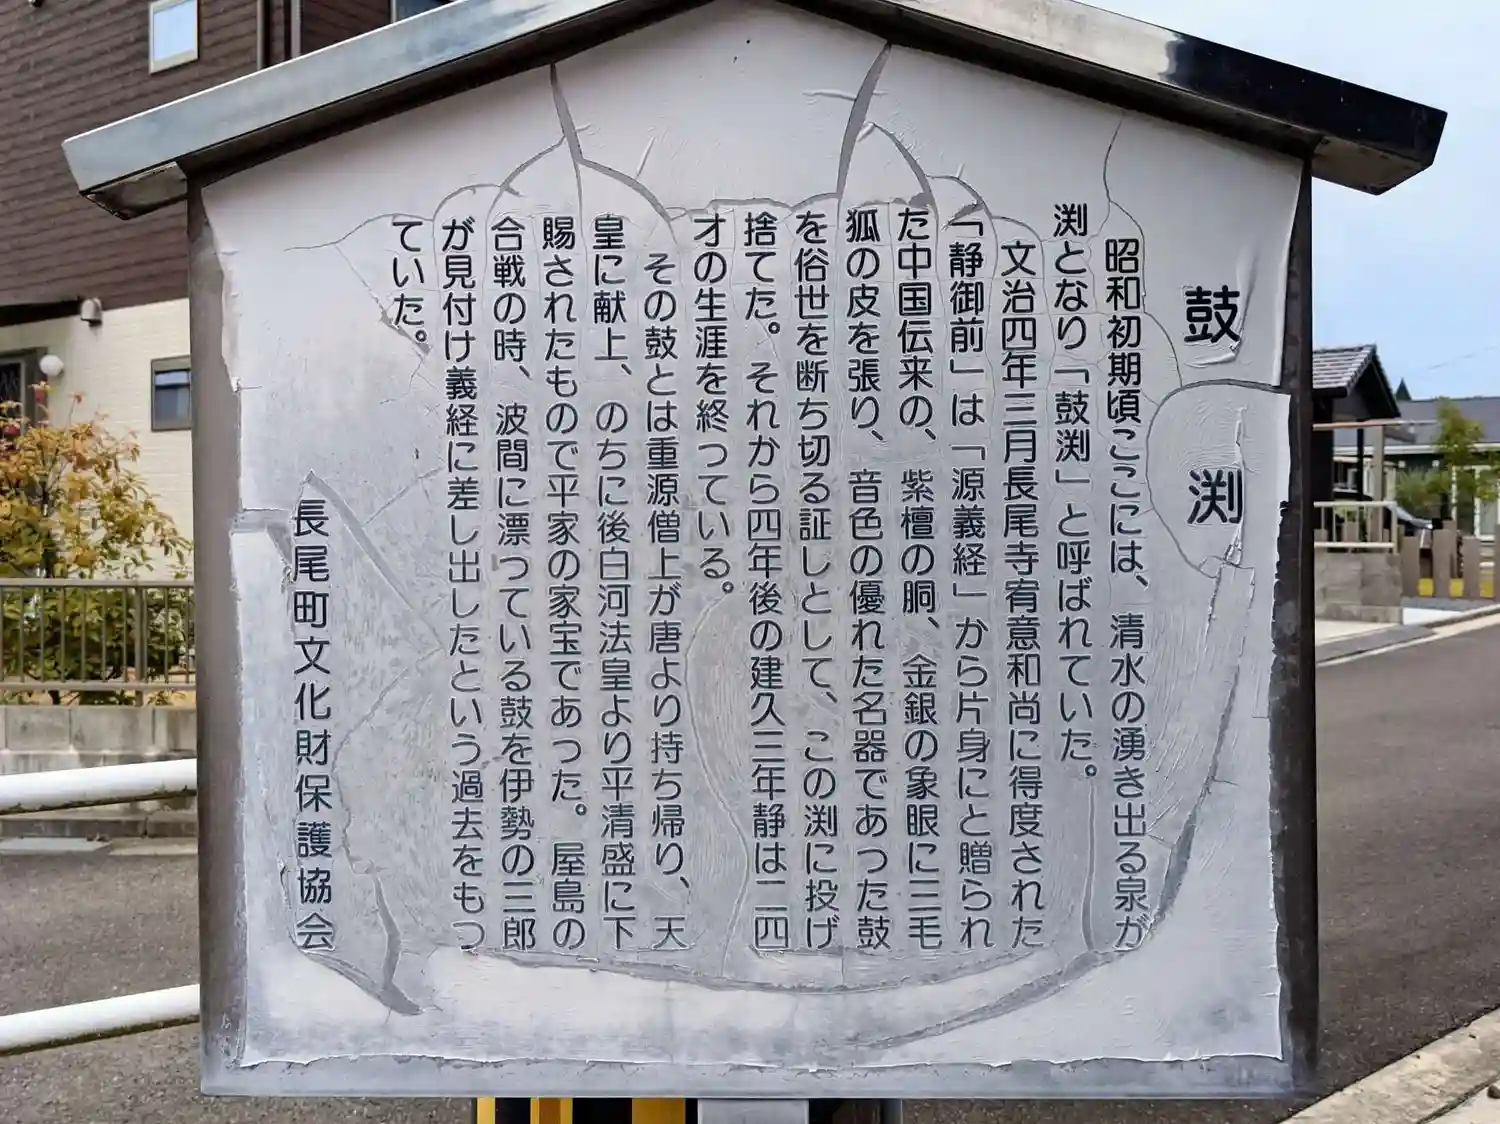 鼓渕
昭和初期頃ここには、清水の湧き出る泉が
渕となり「鼓渕」と呼ばれていた。
文治四年三月長尾寺宥意和尚に得度された
「静御前」は「源義経」から片身にと贈られ
た中国伝来の、紫檀の胴、金銀の象眼に三毛
狐の皮を張り、音色の優れた名器であった鼓
を俗世を断ち切る証しとして、この渕に投げ
捨てた。それから四年後の建久三年静は二四
才の生涯を終っている。
その鼓とは重源僧上が唐より持ち帰り、天
皇に献上、のちに後白河法皇より平清盛に下
賜されたもので平家の家宝であった。屋島の
合戦の時、波間に漂っている鼓を伊勢の三郎
が見付け義経に差し出したという過去をもつ
ていた。
長尾町文化財保護協会